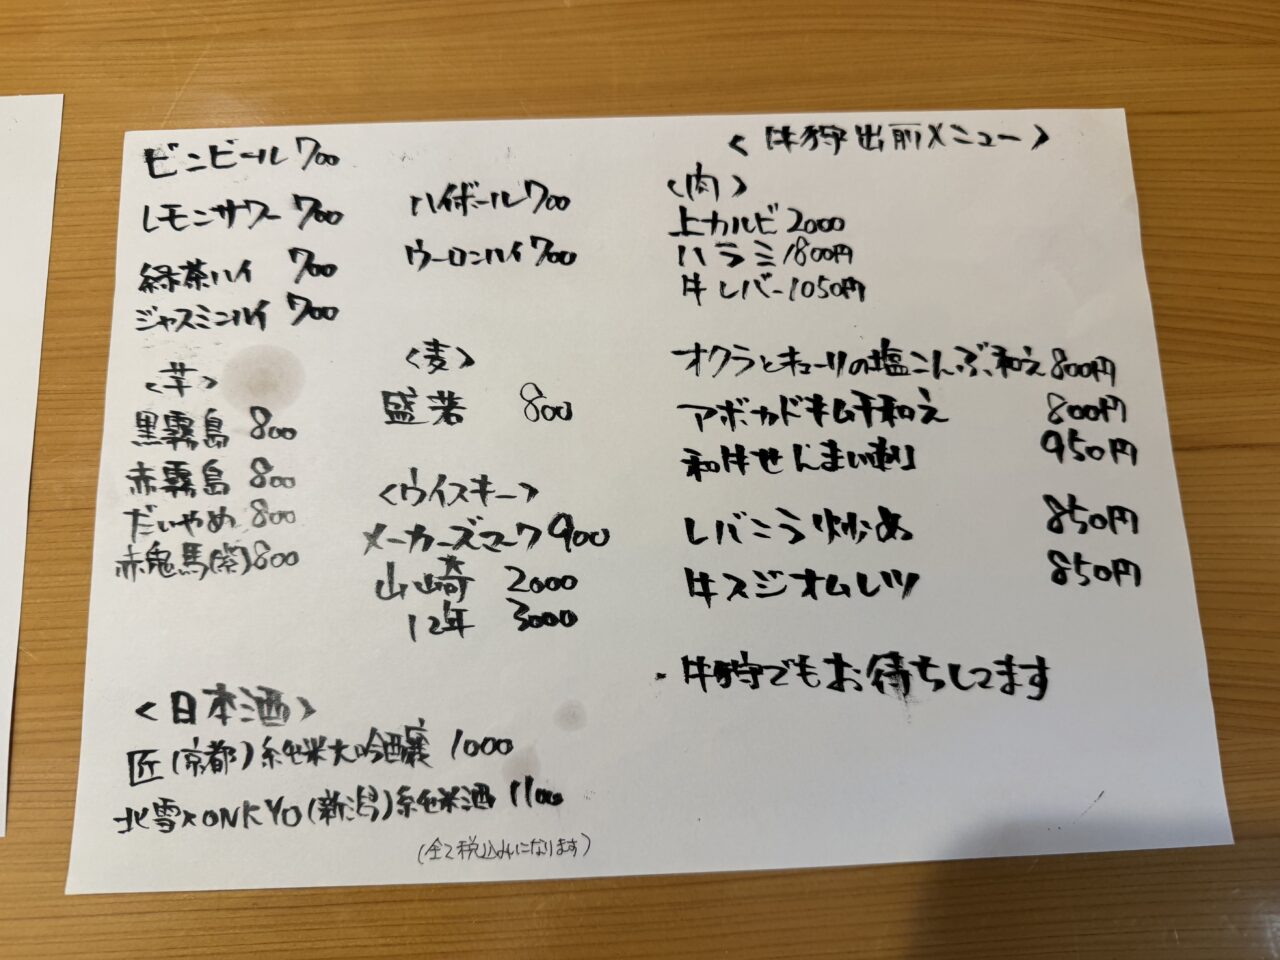 ビンビール 700
レモンサワー 700
緑茶ハイ 700
ジャスミンハイ 700
ハイボール 700
ウーロンハイ 700
<芋>
黒霧島 800
赤霧島 800
だいやめ 800
赤鬼馬(紫) 800
<麦>
盛若 800
<ウイスキー>
メーカーズマーク 900
山崎 2000
12年 3000
<日本酒>
匠(京都)純米大吟醸 1000
北雪×ONKYO(新潟)純米酒 1100
(全て税込みになります)
<牛狩出前メニュー>
<肉>
上カルビ 2000
ハラミ 1800円
牛レバー 1050円
オクラとキューリの塩こんぶ和え 800円
アボカドキムチ和え 800円
和牛せんまい刺し 950円
レバこう炒め 850円
牛スジオムレツ 850円
・牛狩でもお待ちしてます